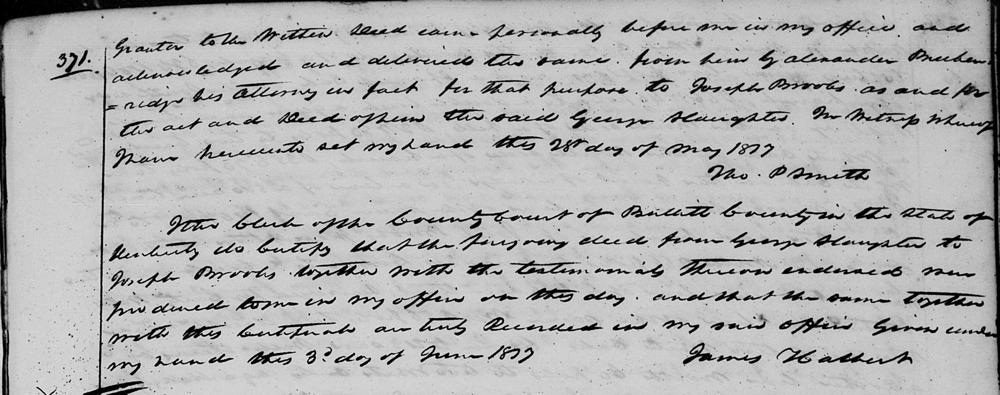 371.
Grantor to the Within Deed came personally before me in my office and
acknowledged and delivered the same from him by alexander Brecken
=redge his Attorney in fact for that purpose to Joseph Brooks as and for
the act and Deed of him the said George Slaughter. In Witness Whereof
I have hereunto set my hand this 28th day of May 1817
Tho. P Smith
I the Clerk of the County Court of Bullitt County in the State of
Kentucky do Certify that the foregoing deed from George Slaughter to
Joseph Brooks together with the testimonials thereon endorsed were
produced to me in my office on this day. and that the same together
with this Certificate are truly Recorded in my said office Given under
my hand this 3d day of June 1817
James Halbert